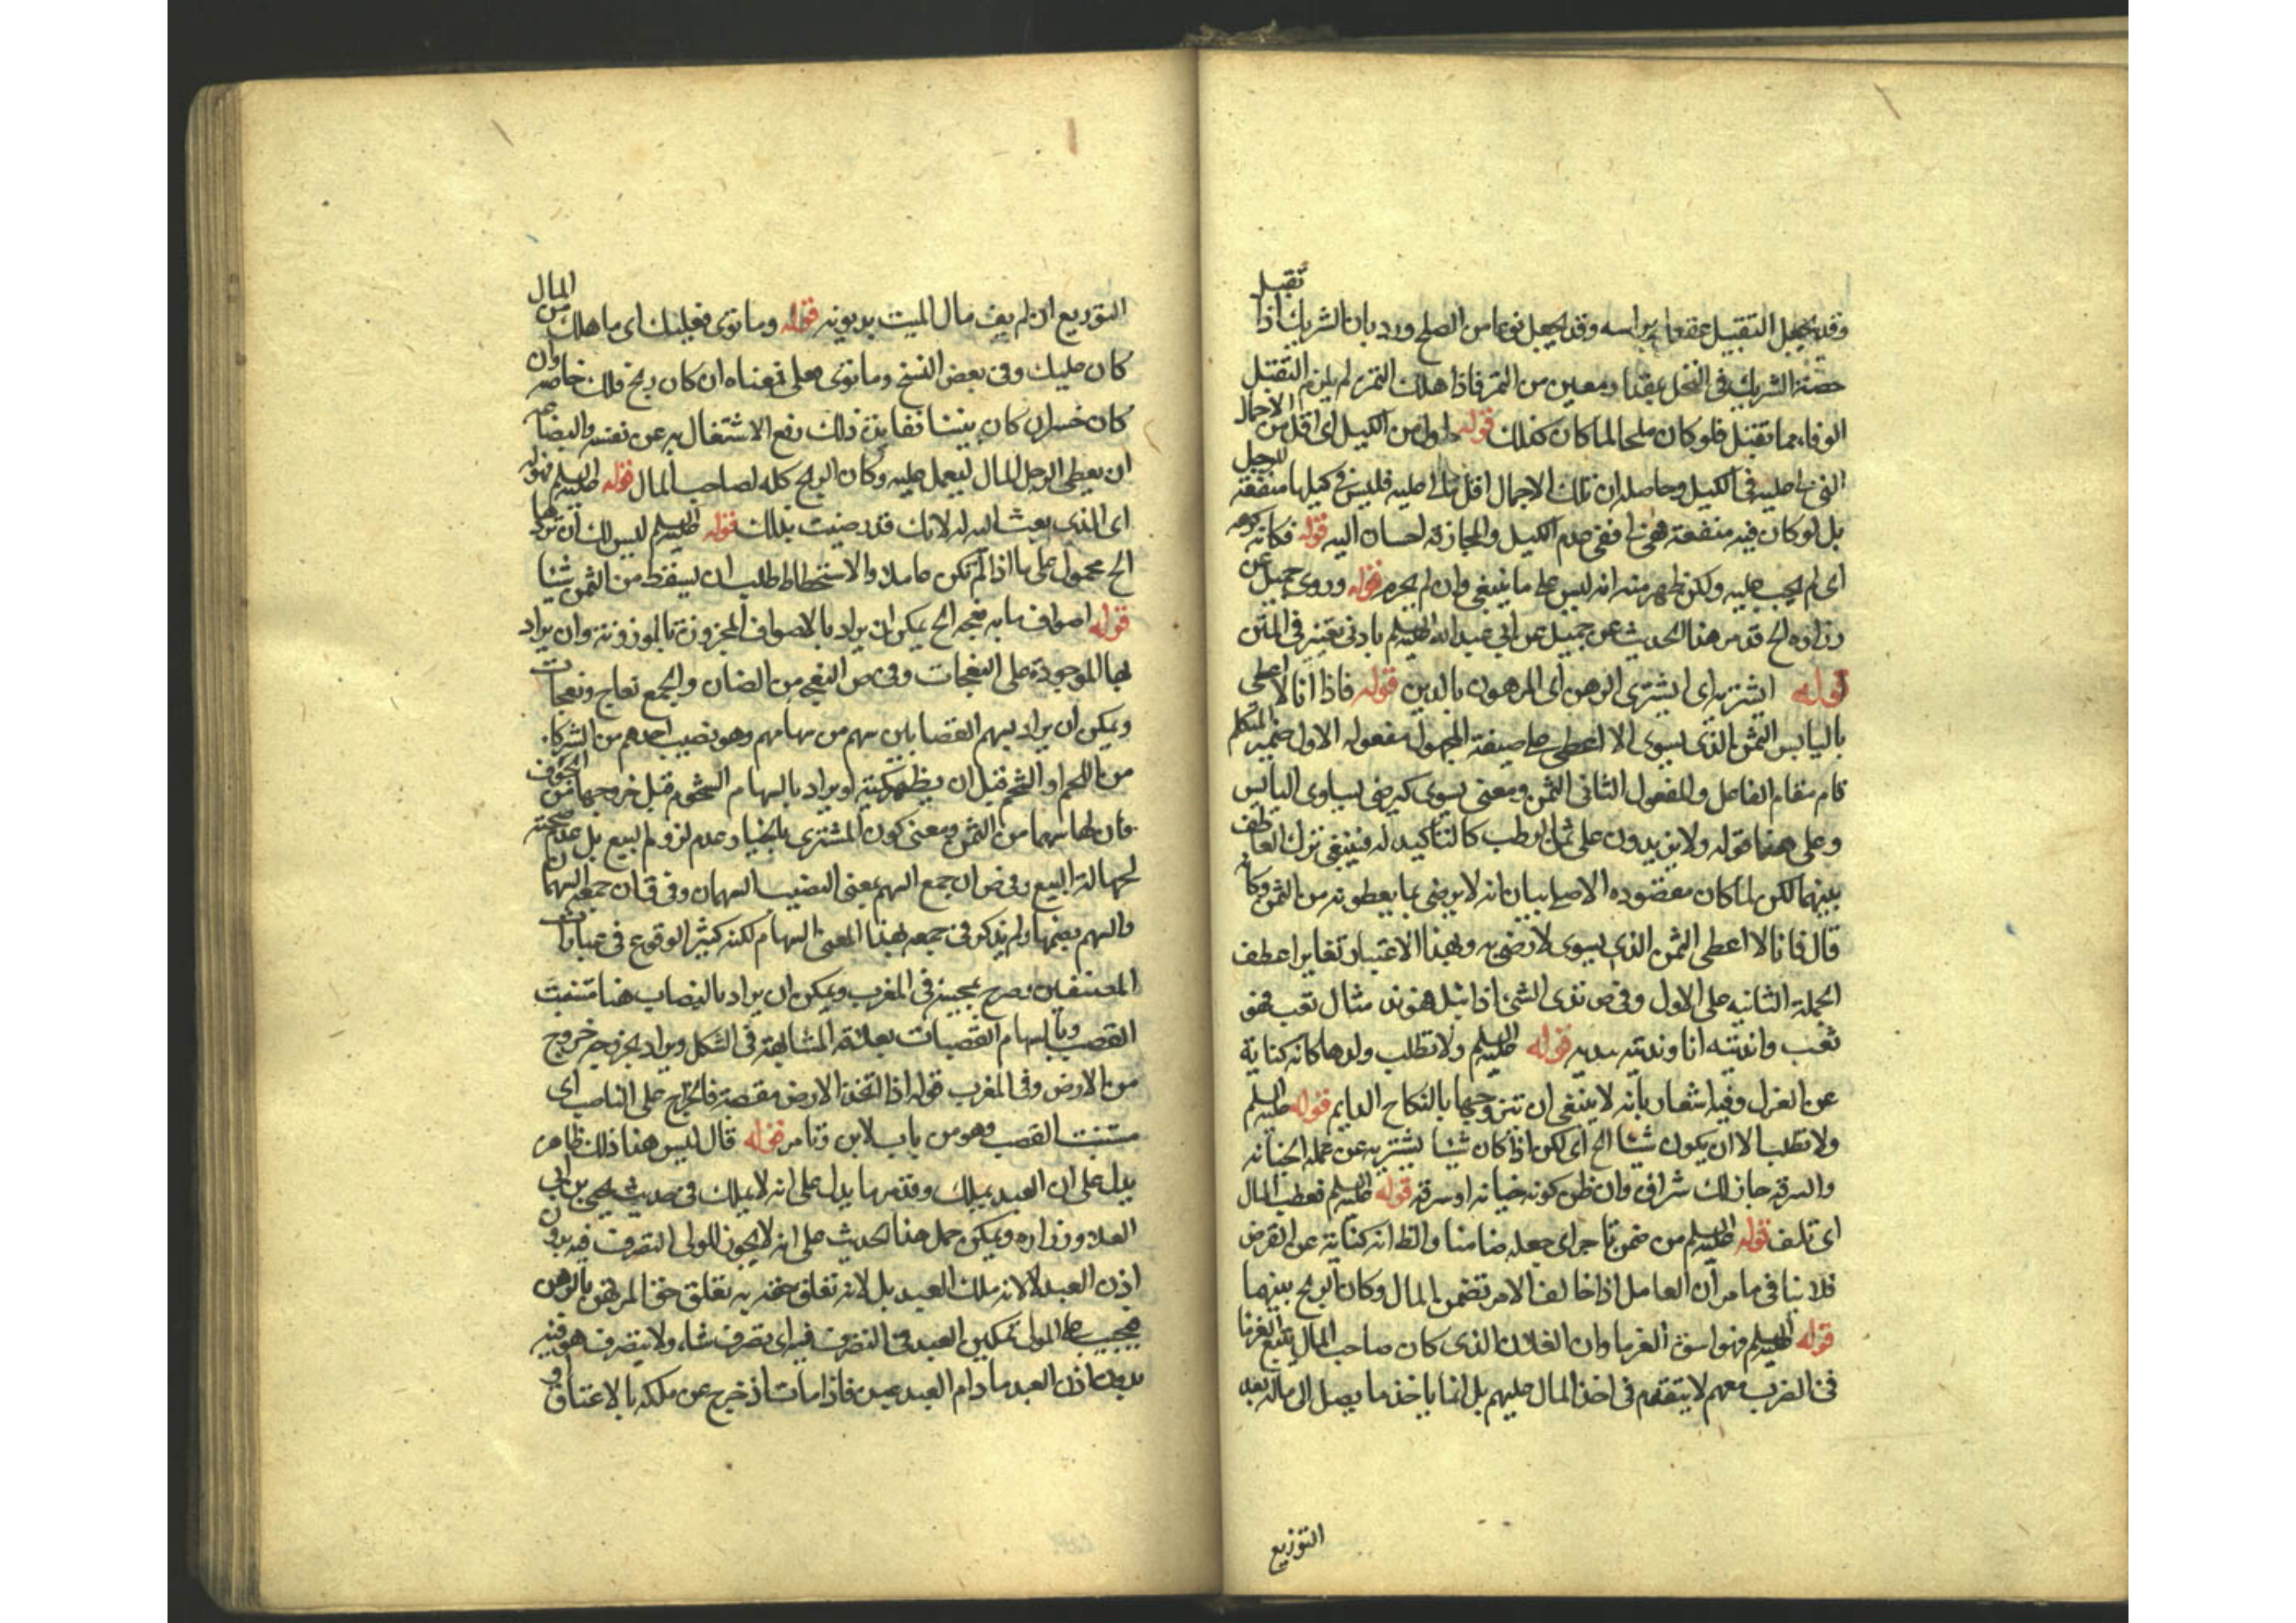 وقد يجعل التقبيل عقدا براسه وقد يجعل نوعا من الصلح ورد بان الشريك اذا تقبل
حصة الشريك في النخل بمقدار معين من الثمر فاذا هلك الثمر لم يلزم التقبل
الوفاء بما تقبل فلو كان صلحا لما كان كذلك قوله اول من الكيل اى اقل من الاجمال
التى عليه فى الكيل وحاصله ان تلك الاجمال اقل عليه فليس فى كيلها منفعة للرجل
بل لو كان فيه منفعة ففى عدم الكيل والمجازفة احسان اليه قوله فكانه كره
اى لم يجب عليه ولكن ظهر منه انه ليس على ما ينبغى وان لم يحرم قوله وروى جميل عن
زراره الخ قد مر هذا الحديث عن جميل عن ابى عبد الله عليه السلم بادنى تغيير فى المتن
قوله ايشتريه اى ايشترى الرهن اى المرهون بالدين قوله فاذا انا لا اعطى
باليابس الثمن الذى يسوى الا اعطى على صيغة المجهول مفعوله الاول ضمير المتكلم
قام مقام الفاعل والمفعول الثانى الثمن ومعنى يسوى كيرضى يساوى اليابس
وعلى هذا قوله ولا يزيدون على ثمن الرطب كالتاكيد له فينبغى ترك العاطف
بينهما لكن لما كان مقصوده الاصلى بيان انه لا يرضى بما يعطونه من الثمن وكانه
قال فانا لا اعطى الثمن الذى يسوى لا رضى به وبهذا الاعتبار تغاير اعطف
الجملة الثانيه على الاول وفى ص ندى الشئ اذا ابتل فهو ند مثال تعب فهو
تعب وانديته انا ونديته تنديه قوله عليه السلم ولا تطلب ولدها كانه كناية
عن العزل وفيه اشعار بانه لا ينبغى ان تتزوجها بالنكاح الدايم قوله عليه السلم
ولا تطلب الا ان يكون شيئا الخ اى لكن اذا كان شيئا يشتريه عن عمله الخيانه
والسرقه جاز لك شراؤه وان ظن كونه خيانه او سرقه قوله عليه السلم فعطب المال
اى تلف قوله عليه السلم من ضمن تاجرا اى جعله ضامنا والظ انه كناية عن القرض
فلا ينافى ما مر ان العامل اذا خالف الامر تضمن المال وكان الربح بينهما
قوله عليه السلم فهو اسوة الغرما وان الفلان الذى كان صاحب المال يتبع الغرما
فى الضرب معهم لا يتقدم فى اخذ المال عليهم بل انما ياخذ ما يصل الى ماله بعد
التوزيع
التوزيع ان لم يف مال الميت بديونه قوله وما توى فعليك اى ما هلك من المال
كان عليك وفى بعض النسخ وما توى فعلى معناه ان كان ربح فلك خاصه وان
كان خسران كان بيننا ففايدة ذلك رفع الاشتغال به عن نفسه والبضاعه
ان يعطى الرجل المال ليعمل عليه وكان الربح كله لصاحب المال قوله عليه السلم فهو له
اى الذى بعث اليه له لانك قد رضيت بذلك قوله عليه السلم ليس لك ان تردها
الخ محمول على ما اذا لم تكن حاملا والاستحطاط طلب ان يسقط من الثمن شيئا
قوله اصواف مايه نعجه الخ يمكن ان يراد بالاصواف المجزوزة بالموزونة وان يراد
بها الموجودة على النعجات وفى ص النعجه من الضان والجمع نعاج ونعجات
ويمكن ان يراد بسهم القصابين سهم من سهامهم وهو نصيب احدهم من الشركاء
من اللحم او الشحم قبل ان يظهر كميته او يراد بالسهام الشحوم قبل خروجها من الجوف
فان لها سهما من الثمن ومعنى كون المشترى بالخيار عدم لزوم البيع بل عدم صحته
لجهالة البيع وفى ص ان جمع السهم بمعنى النصيب السهمان وفى ق ان جمعه السهمان
والسهم بضمها ولم يذكر فى جمعه بهذا المعنى السهام لكنه كثير الوقوع فى عبارات
المصنفين وصرح بمجيئه فى المغرب ويمكن ان يراد بالقصاب هنا منبت
القصب وبالسهام القصبات بعلاقة المشابهة فى الشكل ويراد بخروجه خروج
من الارض وفى المغرب قوله اذا اتخذ الارض مقصبة فالخراج على القاصب اى
منبت القصب وهو من باب لابن وتامر قوله قال ليس هذا ذلك ظاهر
يدل على ان العبد يملك وقد مر ما يدل على انه لا يملك فى حديث يحيى بن ابى
العلاء وزراره ويمكن حمل هذا الحديث على انه لا يجوز للمولى التصرف فيه بدون
اذن العبد لا لانه ملك العبد بل لانه تعلق حقه به تعلق حق المرتهن بالرهن
فيجب على المولى تمكين العبد فى التصرف فيه اى تصرف شاء ولا يتصرف هو فيه
بدون اذن العبد ما دام العبد عبده فاذا مات اذ خرج عن ملكه بالاعتاق او